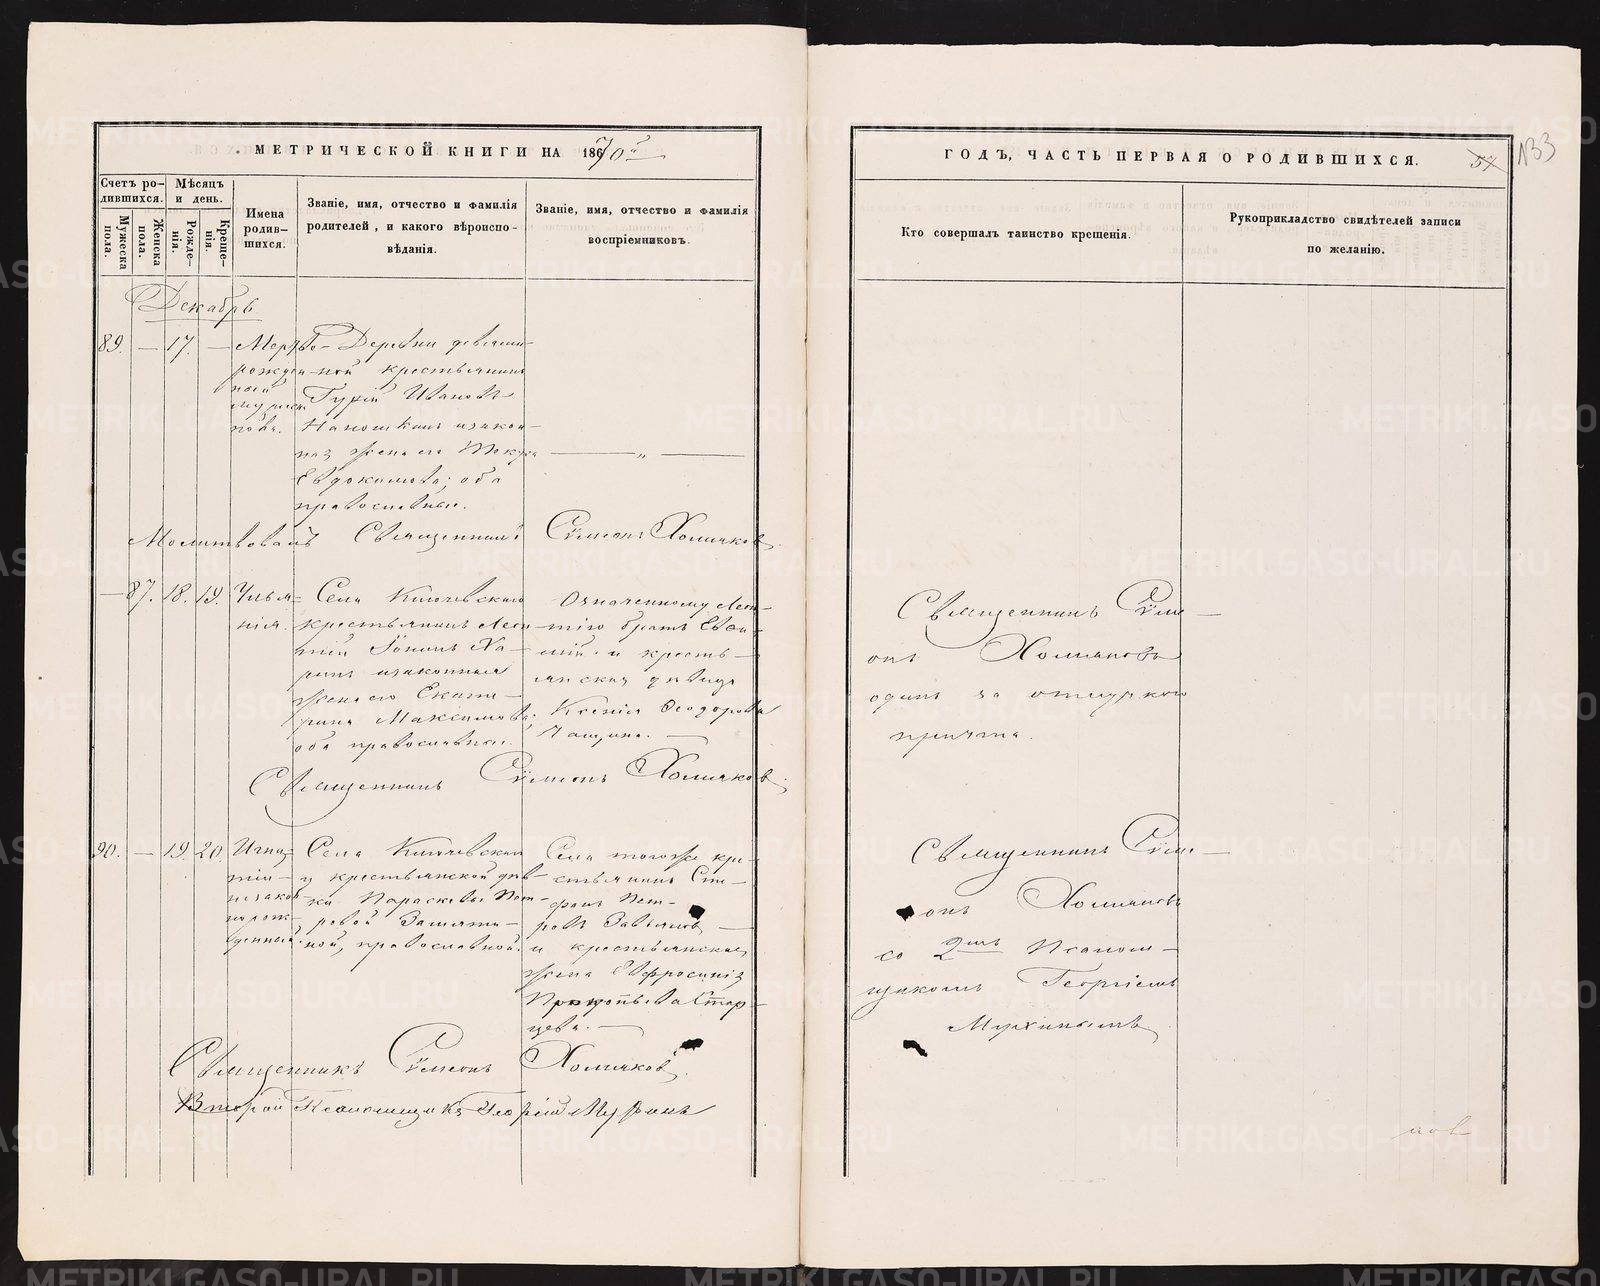 МЕТРИЧЕСКОЙ КНИГИ НА 1870й
Счетъ ро-
дившихся.
Мужеска
пола.
Женска
пола.
Мѣсяцъ
и день.
Рожде-
нія.
Креще-
нія.
Имена
родив-
шихся.
Званіе, имя, отчество и фамилія
родителей, и какого вѣроиспо-
вѣданія.
Званіе, имя, отчество и фамилія
воспріемниковъ.
Декабрь
89. — 17. —
Мертво-
рожден-
ный
мужеск.
пола.
Деревни
крестьянинъ
Гурій Ивановъ
и закон-
ная жена его
Евдокимова; оба
православные.
— „ —
Молитвовалъ Священникъ Сѵмеонъ Холмяковъ.
— 87. 18. 19.
Ульян-
нія.
Села Ключевскаго
крестьянинъ Леон-
тій Іонинъ Ха-
ринъ и законная
жена его Екате-
рина Максимова;
оба православные.
Означенному Леон-
тію братъ Евѳи-
мій и кресть-
янская дѣвица
Ксенія Ѳеодорова
Чащина. —
Священникъ Сѵмеонъ Холмяковъ.
90. — 19. 20.
Игна-
тій—
незакон-
норож-
денный.
Села Ключевскаго
у крестьянской дѣв-
ки Параскевы Пет-
ровой Замяти-
ной, православной.
Села тогоже кре-
стьянинъ Сте-
фанъ Пет-
ровъ Завьяловъ —
и крестьянская
жена Евфросинія
Прокопьева Стар-
цева. —
Священникъ Сѵмеонъ Холмяковъ.
Второй Псаломщикъ Георгій Мухинъ
ГОДЪ, ЧАСТЬ ПЕРВАЯ О РОДИВШИХСЯ.
54
133
Кто совершалъ таинство крещенія.
Рукоприкладство свидѣтелей записи
по желанію.
Священникъ Сѵме-
онъ Холмяковъ
одинъ за отлучкою
причта.
Священникъ Сѵме-
онъ Холмяковъ
со 2мъ Псалом-
щикомъ Георгіемъ
Мухинымъ
METRIKI.GASO-URAL.RU